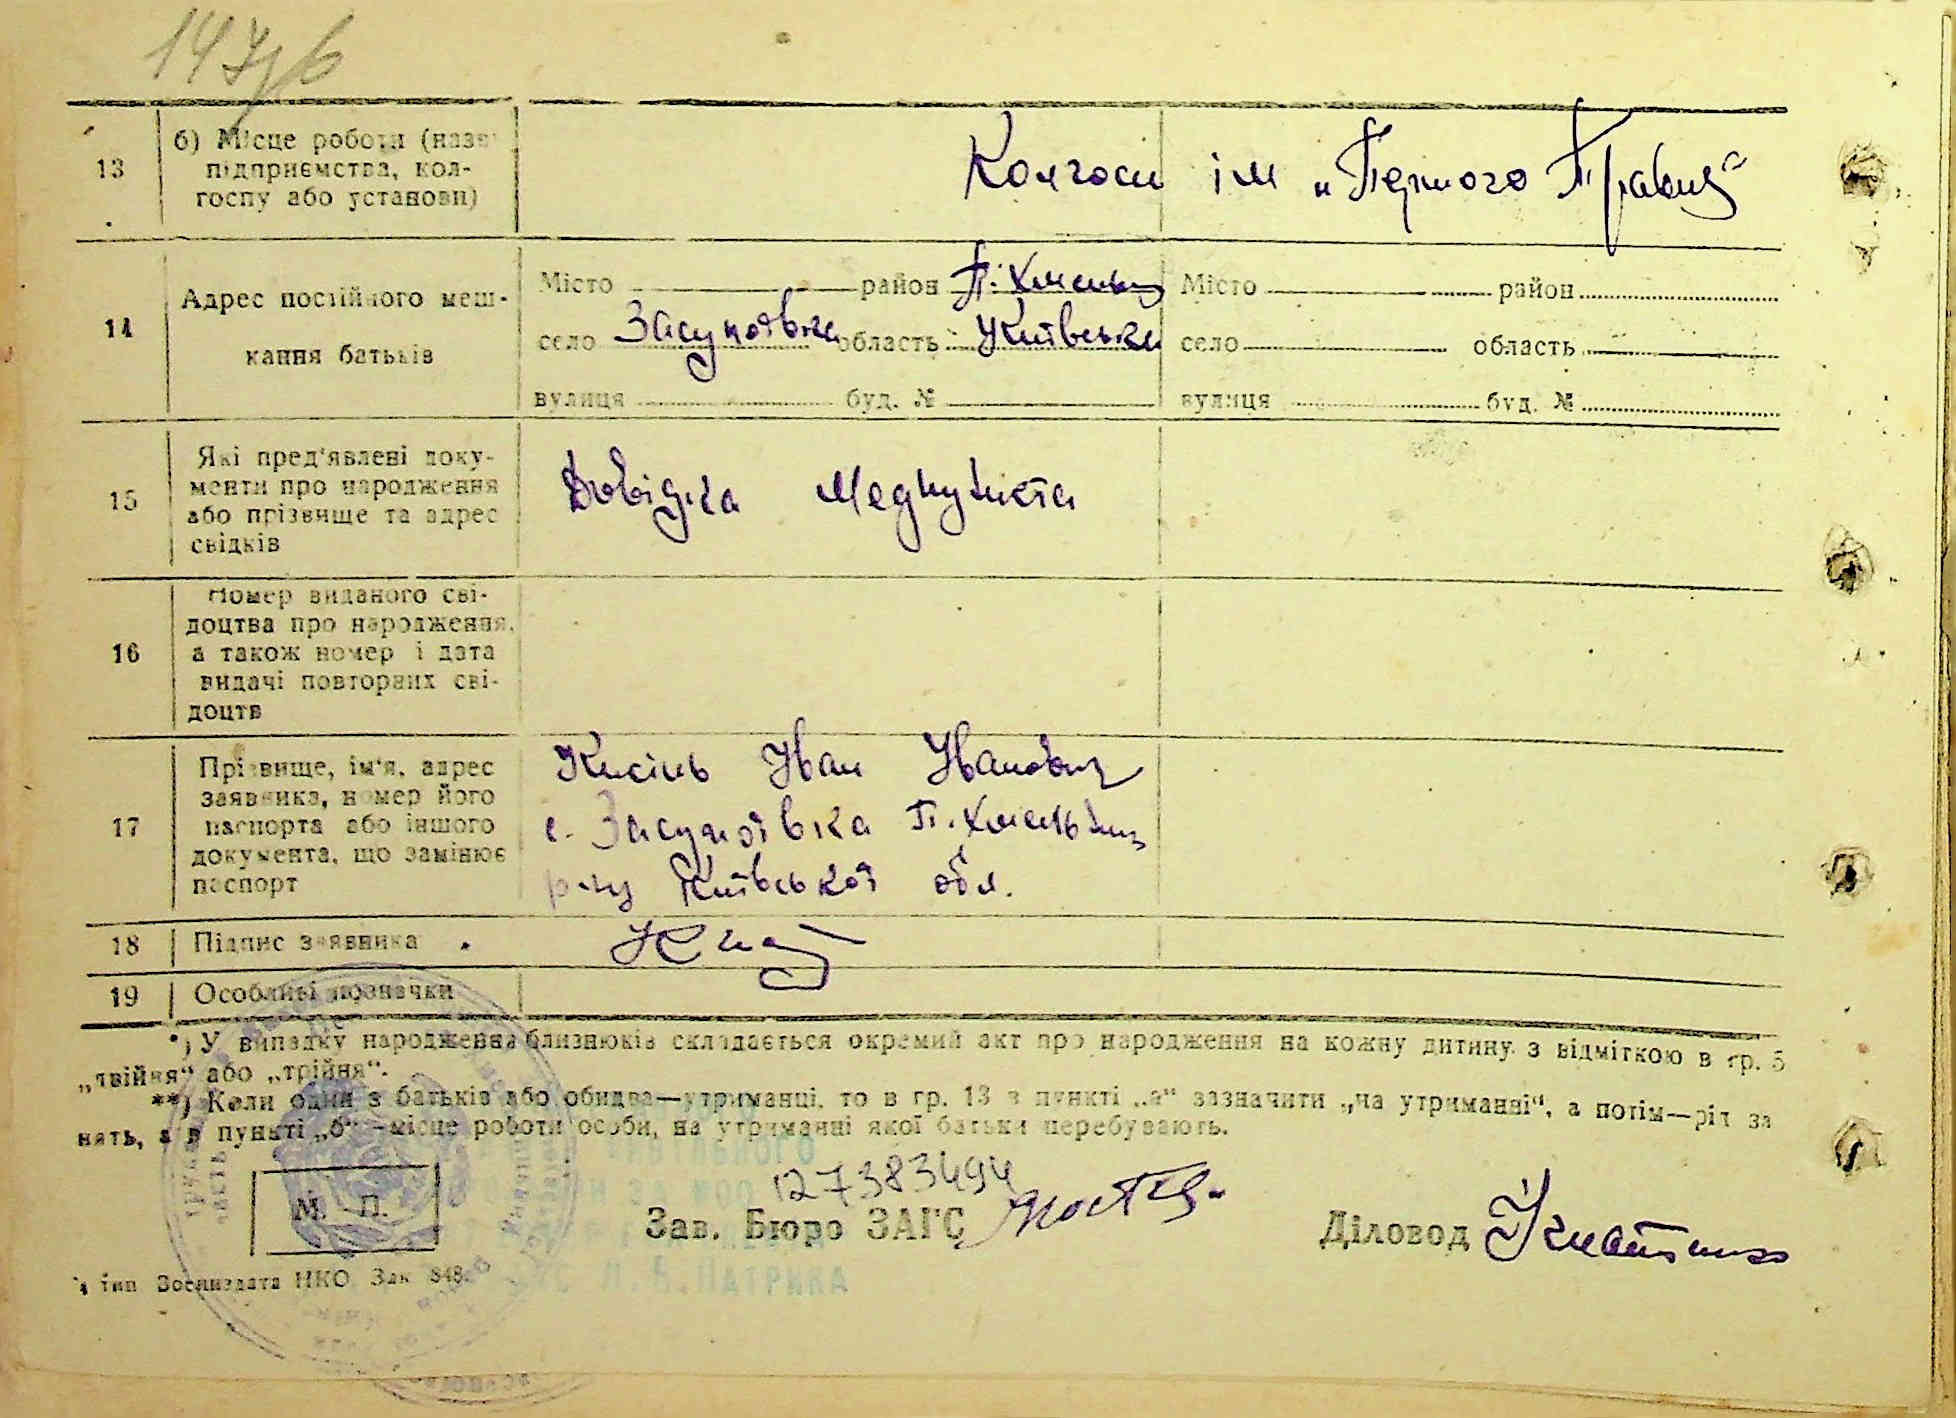 147/6
13
б) Місце роботи (назв
підприємства, кол-
госпу або установи)
Колгосп ім „Першого Травня“
14
Адрес постійного меш-
кання батьків
Місто район П. Хмельн
село Засупоївка область Київська
вулиця буд. №
Місто район
село область
вулиця буд. №
15
Які пред'явлені доку-
менти про народження
або прізвище та адрес
свідків
Довідка Медпункта
16
Номер виданого сві-
доцтва про народження,
а також номер і дата
видачі повторних сві-
доцтв
17
Прізвище, ім'я, адрес
заявника, номер його
паспорта або іншого
документа, що замінює
паспорт
Кисіль Іван Іванович
с. Засупоївка П. Хмельниц
р-ну Київської обл.
18
Підпис заявника
19
Особливі позначки
*) У випадку народження близнюків складається окремий акт про народження на кожну дитину з відміткою в гр. 5
„двійня“ або „трійня“.
**) Коли один з батьків або обидва—утриманці, то в гр. 13 в пункті „а“ зазначити „на утриманні“, а потім—рід за
нять, а в пункті „б“ —місце роботи особи, на утриманні якої батьки перебувають.
М. П.
127383494
Зав. Бюро ЗАГС
Діловод
тип Воениздата НКО Зак 848.
Л. В. ПАТРИКА